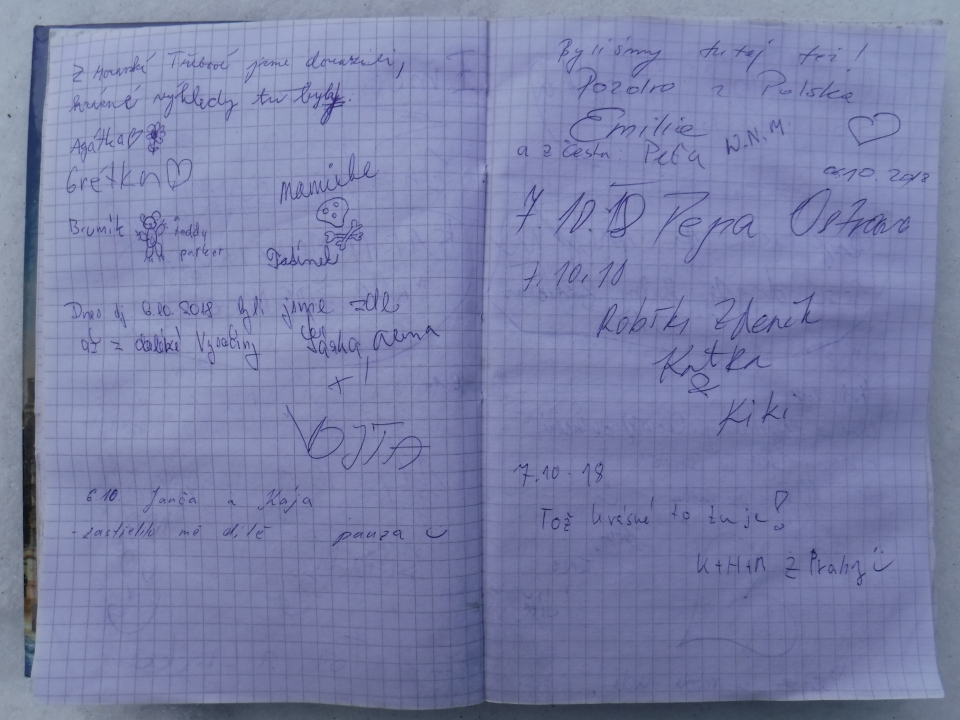 Z Moravské Třebové jsme dorazili,
krásné výhledy tu byly.
Agátka
Gretka
Mamiike
Brumík
Taťínek
Dnes tj 6.10.2018 byli jsme zde
až z daleké Vysočiny Saška, Anna
+
VOJTA
6.10 Janča a Kája
- zastřelilo mě dítě pauza
Byliśmy tutaj trzi!
Pozdro z Polska
Emilie
a z česka Peťa W.N.M.
06.10.2018
7.10.18 Pepa Ostrava
7.10.18
Robik Zdeněk
Katka
&
Kiki
7.10.18
Tož krásné to tu je!
K+H+M z Prahy